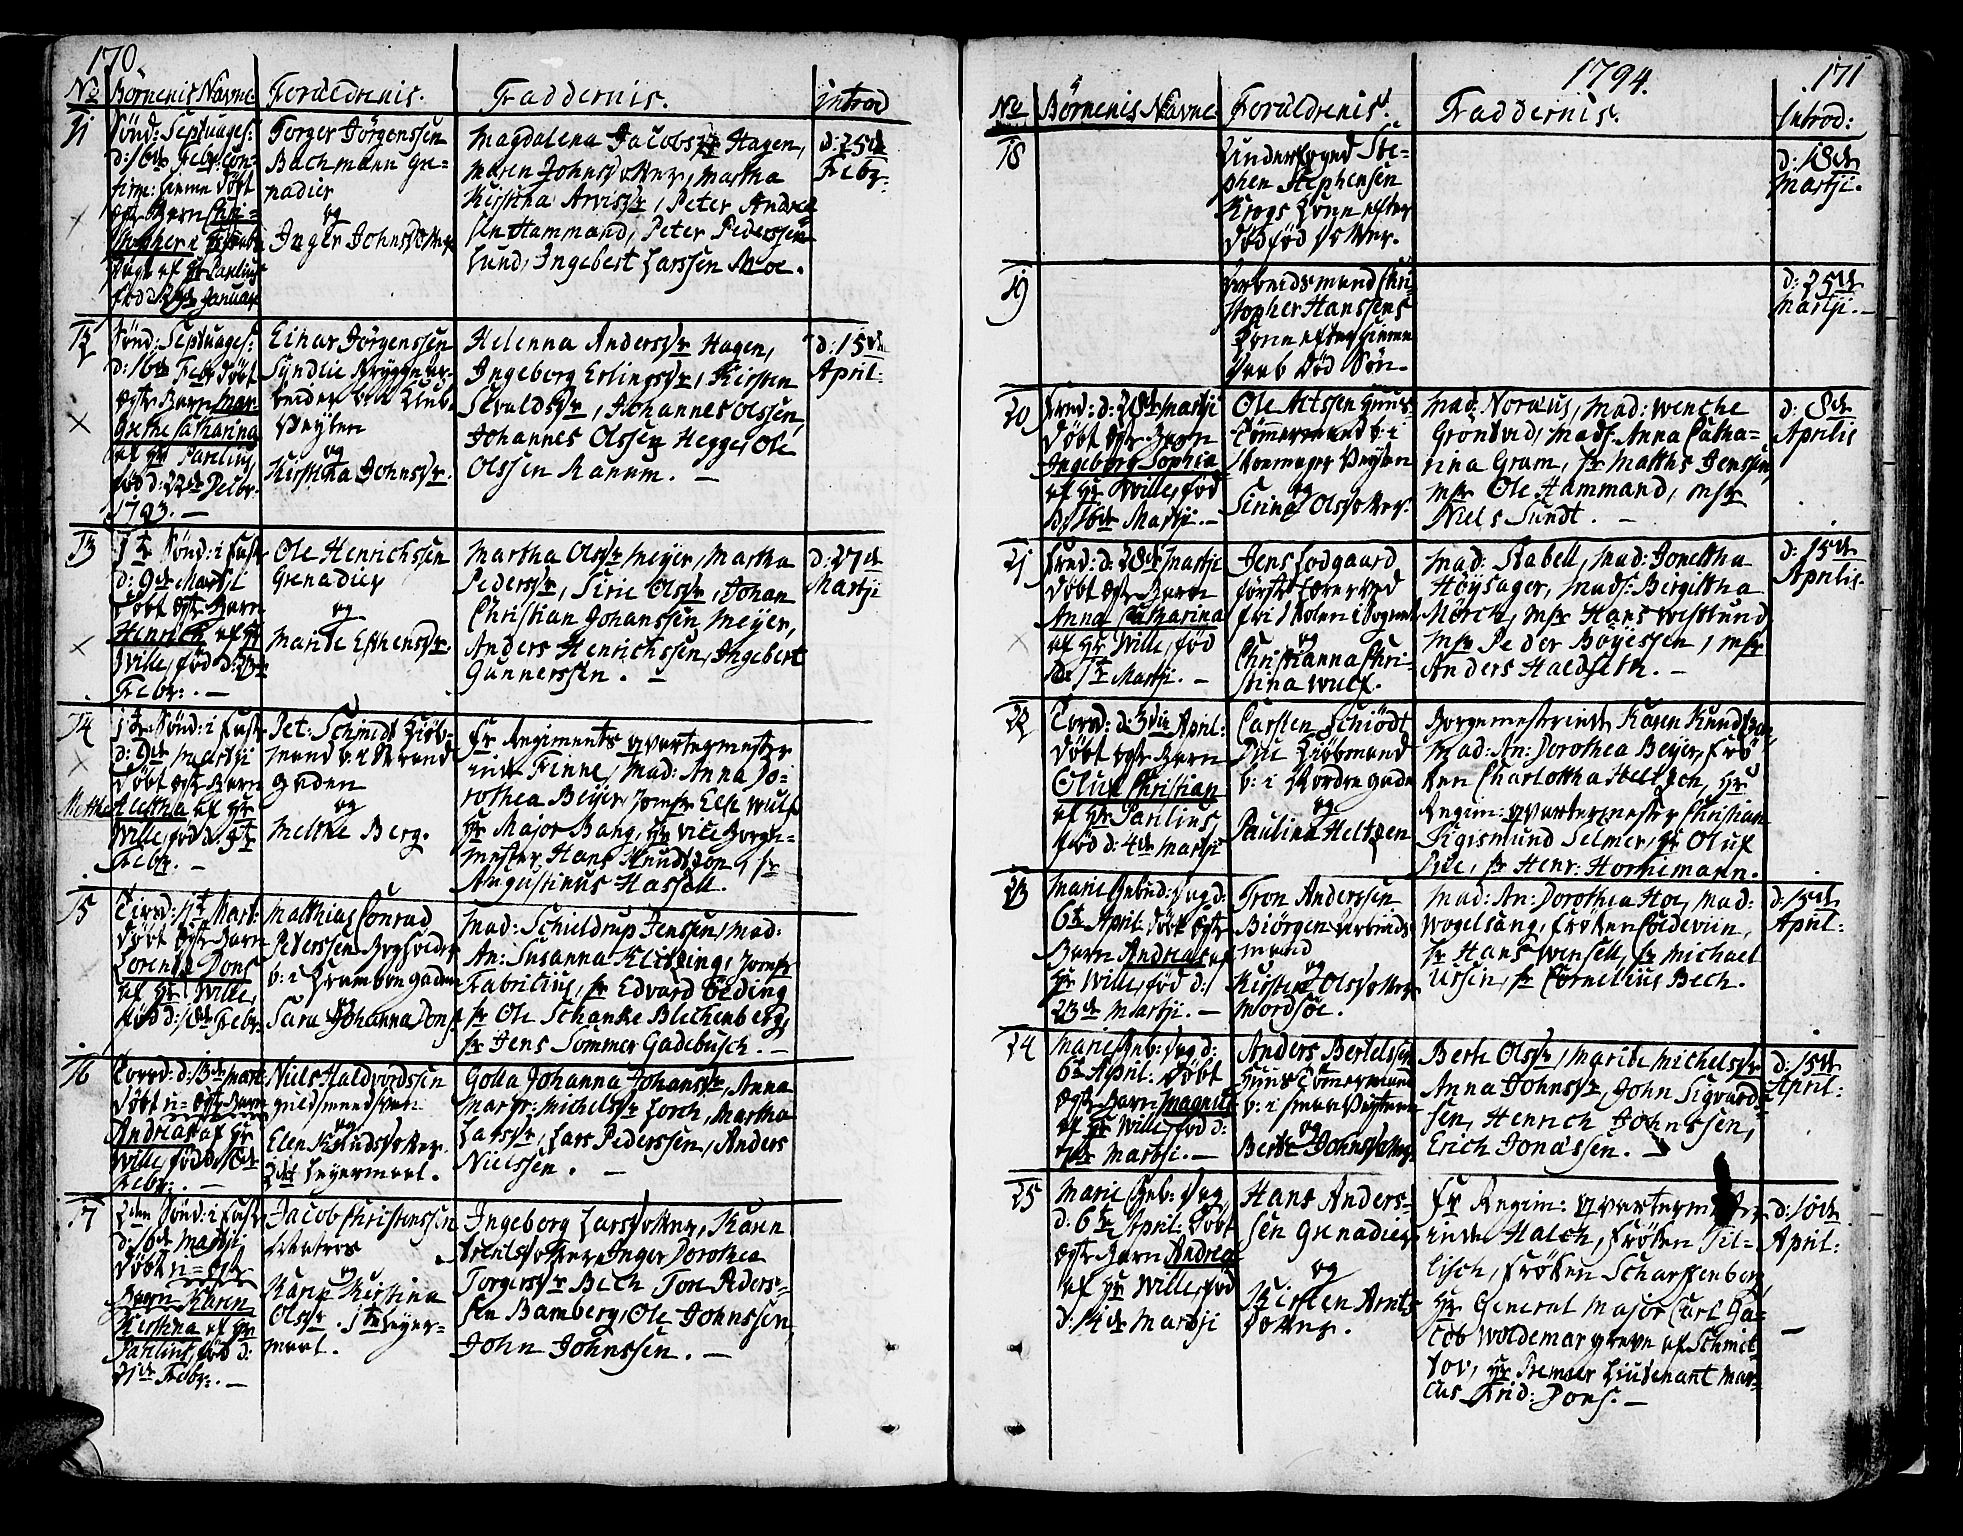 170.
No Börnenis Navne. Forældrenis. Faddernis. Introd
11
Sönd: Septuages:
d: 16de Febr. con-
firm: hiemme döbt
ægte Barn Chri-
stopher
af Hr Parelius
född Januar
Torger Jörgenssen
Bachmann Gre-
nadier
og
Inger Johnsdotter
Magdalena Jacobsdr Hagen,
Maren Johnsdotter, Martha
Kistina Arvisdr, Peter Andrea
sen Hammand, Peter Pederssen
Lund, Ingebert Larssen Moe.
d: 25de
Febr:
12
Sönd: Septuages:
d: 16de Febr döbt
ægte Barn Mar-
grethe Catharina
af Hr Parelius,
föd d: 22de Decbr.
1793. —
Einar Jörgenssen
Syndlie Bryggear-
beider
Veyten
og
Kistina Johnsdr.
Helenna Andersdr Hagen,
Ingeborg Erlingsdr, Kirsten
Sivaldsdr, Johannes Olssen,
Johannes Olssen Hegge, Ole
Olssen Ranum. —
d: 15de
April:
13
1te Sönd: i Faste
d: 9de Martji
döbt ægte Barn
Henrich af Hr
Wille, föd d: 23de
Febr:. —
Ole Henrichssen
Grenadier
og
Marite Estensdr.
Martha Olsdr Meyer, Martha
Pedersdr, Sirie Olsdr, Johan
Christian Johanssen Meyer,
Anders Henrichssen, Ingebert
Gunnerssen. —
d: 27de
Martji
14
1te Sönd: i Faste
d: 9de Martji
döbt ægte Barn
Mette Alettha af Hr
Wille, föd d: 9te
Febr. —
Pet: Schmidt Kiöb-
mand b: i Strand
gaden
og
Mettke Berg.
Fr Regiments Qvartermester
inde Finne, Mad: Anna Do-
rothea Beyer, Jomfr Else Wulf
Hr Major Bang, Hr Vice Borge-
mester Hans Knudtzon, Sr
Augustinus Hassell.
15
Tirsd: 11te Mart:
döbt ægte Barn
Lorentz Dons
af Hr Wille,
föd d: 10de Febr:
Matthias Conrad
Pederssen Bogholder
b: i Krambugaden
og
Sara Johanna Dons
Mad: Schieldrup Jenssen, Mad:
An: Susanna Klitzing, Jomfr
Fabritius, Sr Edvard Öeding
Sr Ole Schanke Blichenberg,
Sr Jens Sommer Gadebusch. —
16
Torsd: d: 13de Mart:
döbt u=ægte Barn
Andreas af Hr
Wille, föd d: 10de
Febr:. —
Niels Haldvordssen
guldsmedsven
og
Elen Knudsdotter
2det Leyermaal.
Golla Johanna Johansdr, Anna
Margr: Michelsdr Lorch, Martha
Larsdr, Lars Pederssen, Anders
Nielssen. —
17
2den Sönd: i Faste
d: 16de Martji
döbt u=ægte
Barn Karen
Kistina af Hr
Parelius, föd d:
21de Febr:. —
Jacob Christenssen
Matros
og
Karen Kistina
Olsdr. 1te Leyer-
maal.
Ingeborg Larsdotter, Karen
Arentsdotter, Inger Dorothea
Torgersdr Bech, Tore Peders-
sen Bamberg, Ole Johnssen,
John Johnssen. —
1794. 171
No Börnenis Navne Forældrenis. Faddernis. Introd:
18
Underfoged Ste-
phen Stephensen
Krogs Kone efter
Dödföd Dotter.
d: 18de
Martji.
19
Arbeidsmand Chri-
stopher Hanssens
Kone efter hiemme
Daab död Sön.
d: 25de
Martji. —
20
Fred: d: 28de Martji
döbt ægte Barn
Ingeborg Sophia
af Hr Wille, föd
d: 16de Martji. —
Ole Altssen Huus
Tömmermand b: i
Skomager Veyten
og
Sirina Olsdotter.
Mad: Noræus, Mad: Wenche
Gröntved, Mads: Anna Catha-
rina Gram, Sr Matths Jenssen,
Msr Ole Hammand, Msr
Niels Sundt. —
d: 8de
Aprilis
21
Fred: d: 28de Martji
döbt ægte Barn
Anna Catharina
af Hr Wille, föd
d: 1te Martji. —
Jens Lodgaard
förste Lærer ved
fri Skolen i Sognet
og
Christianna Chri-
stina Wulf.
Mad: Stabell, Mad: Jonettha
Höysager, Mads: Birgittha
Mörch, Msr Hans Westlund
Msr Peder Böyessen, Msr
Anders Haldseth. —
d: 15de
Aprilis.
22
Torsd: d: 3die April:
döbt ægte Barn
Oluf Christian
af Hr Parelius
föd d: 4de Martji
Carsten Schiödt
Due Kiöbmand
b: i Nordre gade
og
Paulina Heltzen
Borgemesterinde Karen Knudtzon,
Mad: An: Dorothea Beyer, Frö
ken Charlottha Heltzen, Hr
Regim: Qvartermester Christian
Sigismund Selmer, Hr Oluf
Due, Sr Henr: Hornemann.
23
Marie Bebud: Dag d:
6te April: döbt ægte
Barn Andreas af
Hr Wille, föd d:
23de Martji. —
Tron Anderssen
Biörgen Arbeids
mand
og
Kirsten Olsdotter
Mordsöe.
Mad: An: Dorothea Hoe, Mad:
Wogelsang, Fröken Coldeviin,
Sr Hans Wensell, Sr Michael
Ussin, Sr Cornelius Bech.
d: 15de
April:
24
Marie Beb: Dag d:
6te April: döbt
ægte Barn Magnus
af Hr Wille, föd d:
7de Martji. —
Anders Bertelssen
Huus Tömmermand
b: i Veyten
og
Berte Johnsdotter
Berte Olsdr, Marite Michelsdr
Anna Johnsdr, John Sigvards-
sen, Henrich Johnssen,
Erich Jonassen. —
d: 15de
April:
25
Marie Beb: Dag
d: 6te April: döbt
ægte Barn Andrea
af Hr Wille, föd
d: 14de Martji
Hans Anders-
sen Grenadier
og
Kirsten Arnts
dotter.
Fr Regim: Qvartermester
inde Halch, Fröken Til-
lisch, Fröken Scharffenberg,
Hr General Major Carl Ja-
cob Woldemar Greve af Schmet-
tov, Hr Premier Lieutenant Mar-
cus Frid: Dons. —
d: 10de
April:
—